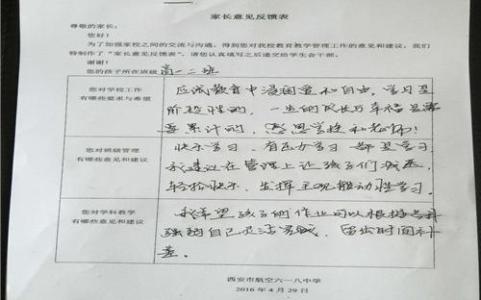 家长意见反馈表
尊敬的家长：
您好！
为了加强家校之间的交流与沟通，得到您对我校教育教学管理工作的意见和建议，我们
特制作了“家长意见反馈表”，请您认真填写之后递交给学生会干部。
谢谢！
您的孩子所在班级 高一二班
您对学校工作
有哪些要求与希望
应试教育中没有温和自由，学习是
阶段性的，一生的成长与幸福是需
要累计的，感恩学校和老师！
您对班级管理
有哪些意见和建议
快乐学习，有压力学习都是学习
我建议在管理上让孩子们减压，
轻松快乐，发挥主观能动性学习。
您对学科教学
有哪些意见和建议
我希望孩子们作业可以根据学科
强弱自己灵活完成，留出时间补
差。
西安市航空六一八中学
2016 年 4 月 29 日